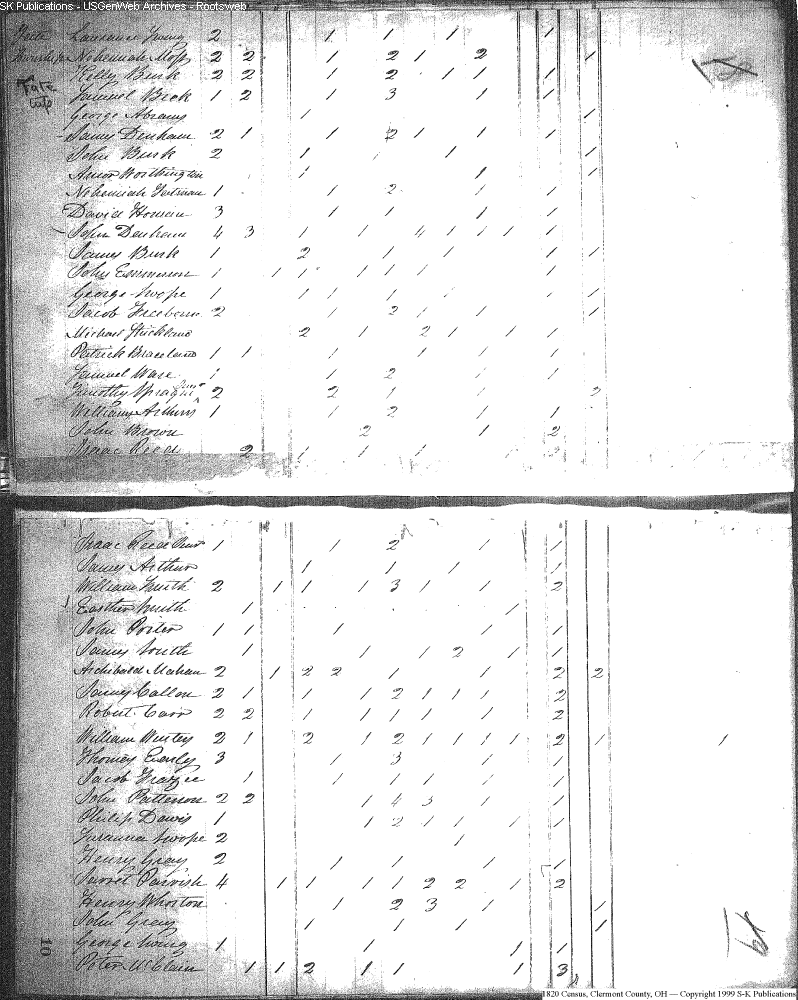 SK Publications - USGenWeb Archives - Rootsweb
2 1 1 1 1
Nehemiah Moss 2 2 1 2 1 2 1
Kelly Burk 2 2 1 2 1 1 1
Tate Samuel Beck 1 2 1 3 1 1
George Abrams 1 1
James Denham 2 1 1 2 1 1 1
John Burk 2 1 1 1
Amor Worthington 1 1 1
Nehemiah 1 1 2 1 1
David Homan 3 1 1 1 1
John Denham 4 3 1 1 4 1 1 1 1
James Burk 1 2 1 1 1 1
John Emmerson 1 1 1 1 1 1 1
George Swope 1 1 1 1 1 1
Jacob 2 1 2 1 1 1
Michael Strickland 2 1 2 1 1 1
Patrick Braceland 1 1 1 1 1 1 1
Samuel Ware 1 1 2 1
Timothy Sprague 2 2 1 1 2
William Arthurs 1 1 2 1 1
John Brown 2 1 2
Isaac Reed 2 1 1 1
Isaac Reed 1 1 2 1 1
James Arthur 1 1 1 1
William Smith 2 1 1 1 3 1 1 2
Easther Smith 1 1
John Porter 1 1 1 1 1
James South 1 1 1 2 1 1
Archibald Mahan 2 1 2 2 1 1 2 2
James Callon 2 1 1 1 2 1 1 1 2
Robert Carr 2 2 1 1 1 1 1 2
William 2 1 2 1 2 1 1 1 1 2 1 1
Thomas Early 3 1 3 1 1
Jacob Frazee 1 1 1 1 1 1
John Patterson 2 2 1 4 3 1 1
Philip Davis 1 1 2 1 1 1 1
Susanna Swope 2 1
Henry Gray 2 1 1 1 1
Parrish 4 1 1 1 1 2 2 1 2
Henry Whorton 1 2 3 1 1
John Gray 1 1 1 1
George 1 1 1 1
Peter McClain 1 1 2 1 1 1 3
10
1820 Census, Clermont County, OH — Copyright 1999 S-K Publications